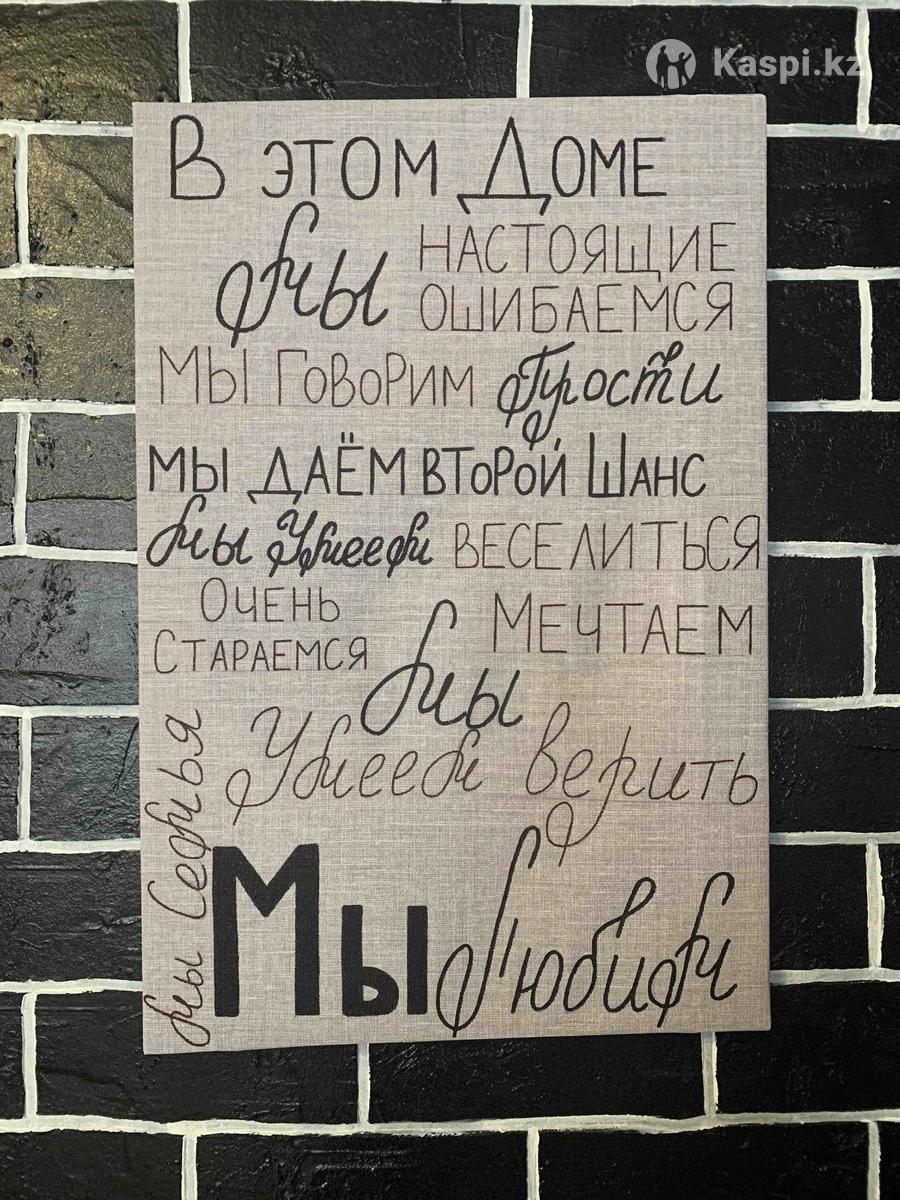 Kaspi.kz
В ЭТОМ ДОМЕ
мы НАСТОЯЩИЕ
ОШИБАЕМСЯ
МЫ ГОВОРИМ Прости
МЫ ДАЁМ ВТОРОЙ ШАНС
мы Умеем ВЕСЕЛИТЬСЯ
ОЧЕНЬ
СТАРАЕМСЯ
МЕЧТАЕМ
мы
Умеем верить
мы Семья
Мы Любим